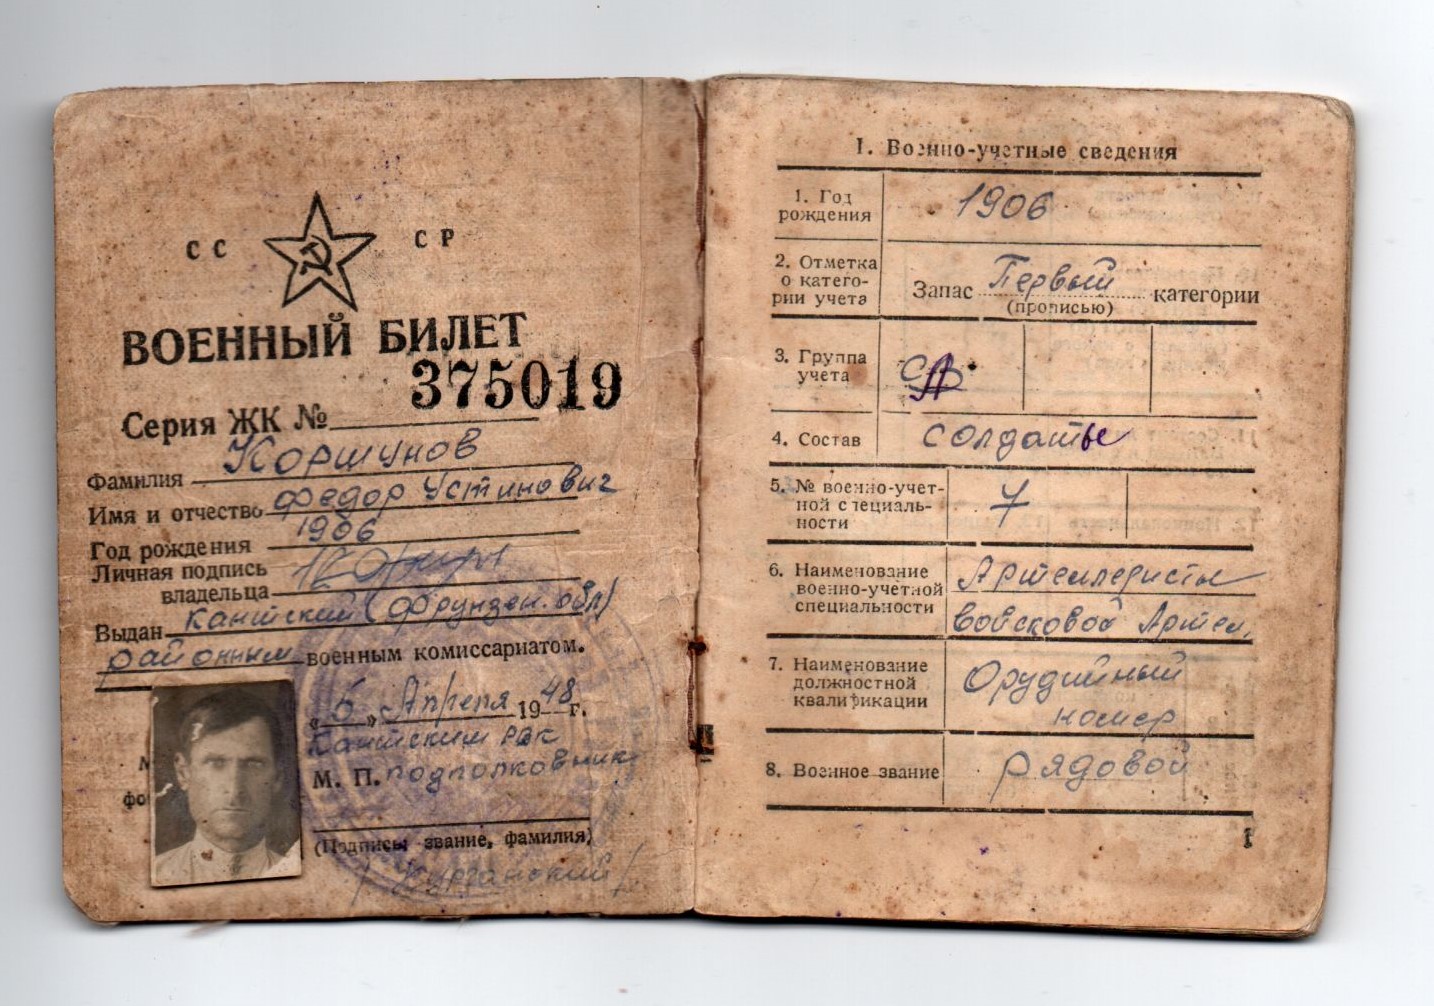 СС СР
ВОЕННЫЙ БИЛЕТ
375019
Серия ЖК №
Фамилия Коршунов
Имя и отчество Федор Устинович
Год рождения 1906
Личная подпись
владельца
Выдан Кантский (Фрунзен. обл)
районным военным комиссариатом.
„5" Апреля 1948 г.
Кантским РВК
М. П. подполковник
(Подпись, звание, фамилия)
/Курганский/
I. Военно-учетные сведения
1. Год
рождения
1906
2. Отметка
о катего-
рии учета
Запас Первый категории
(прописью)
3. Группа
учета
4. Состав
солдаты
5. № военно-учет-
ной специаль-
ности
7
6. Наименование
военно-учетной
специальности
Артеллеристы
войсковой Артел.
7. Наименование
должностной
квалификации
Орудийный
номер
8. Военное звание
рядовой
1